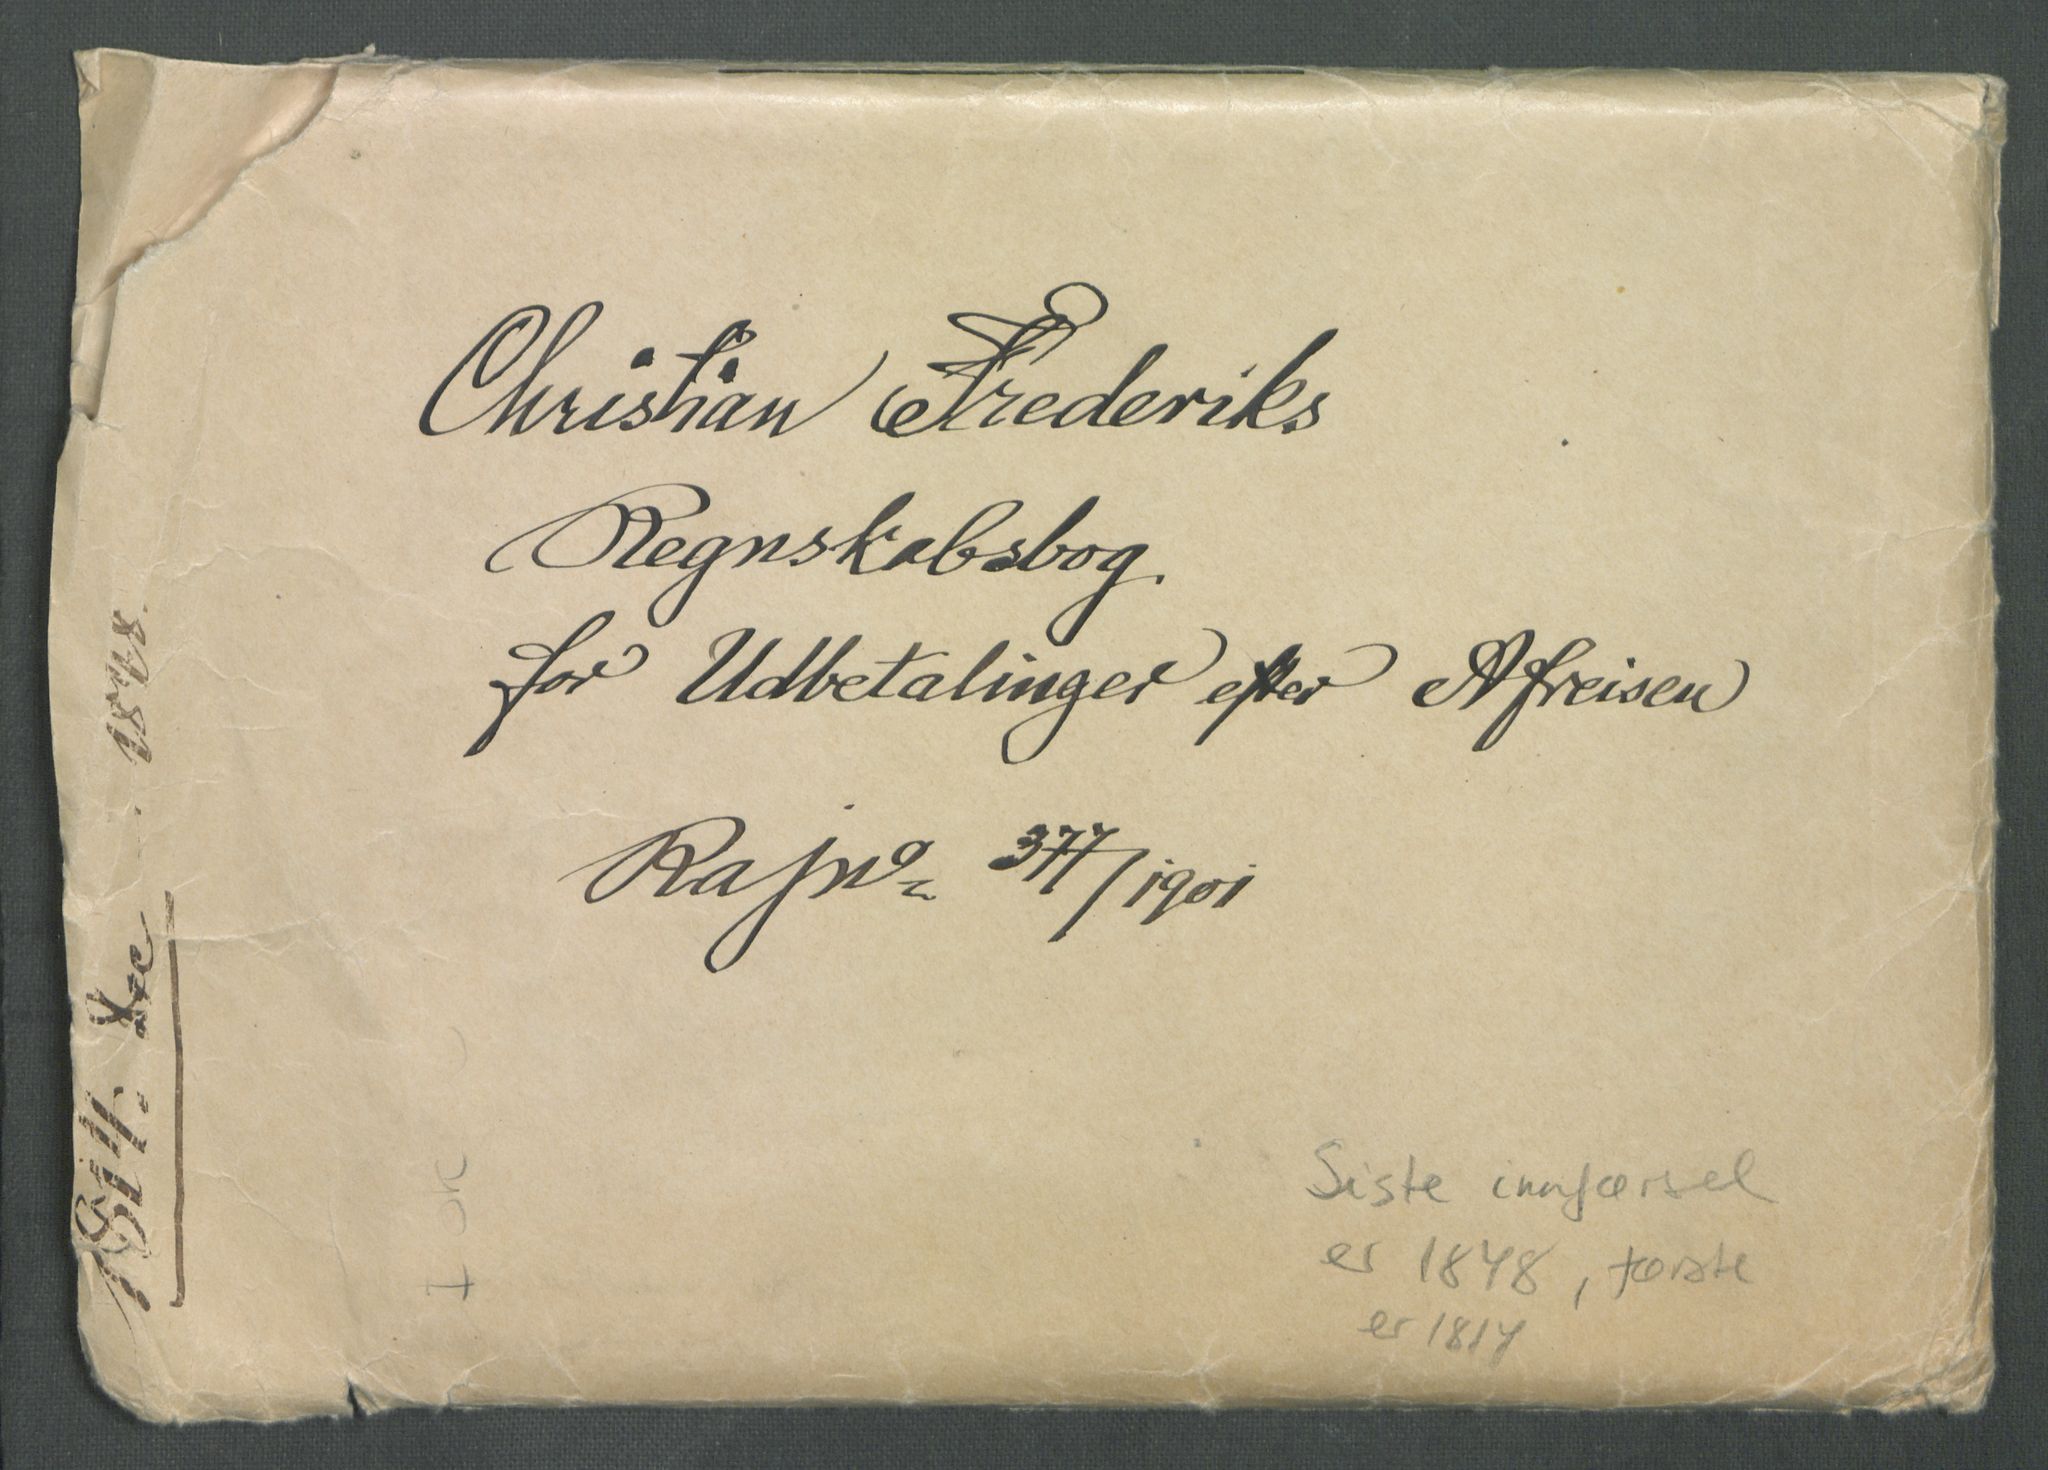 Christian Frederiks
Regnskabsbog
for Udbetalinger efter Afreisen
Rajno 377/1901
Siste innførsel
er 1848, første
er 1814
1 ok